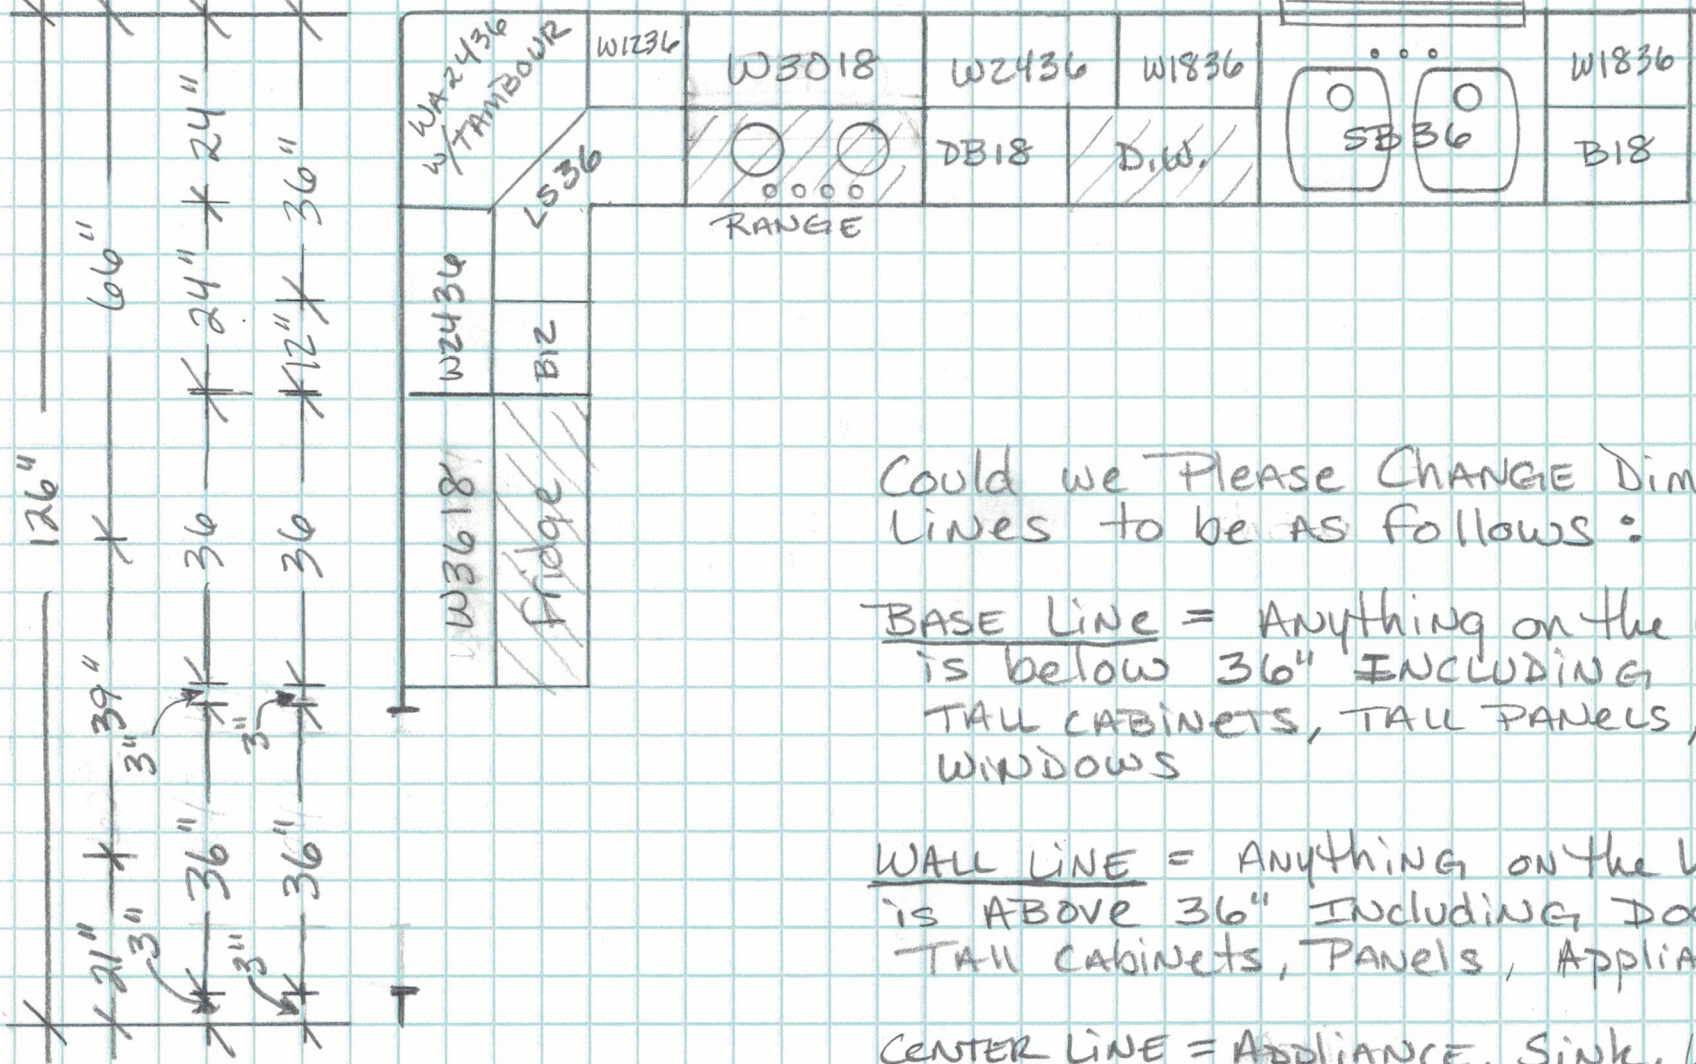 WA2436
W/TAMBOUR
W1236
W3018
W2436
W1836
W1836
LS36
DB18
D.W.
SB36
B18
RANGE
W2436
B12
W3618
fridge
126"
66"
39"
21"
24"
24"
36
3"
36"
3"
36"
12"
36
3"
36"
3"
Could we Please CHANGE Dim
Lines to be As follows:
BASE LiNe = ANythiNg on the
is below 36" INCLUDiNG
TALL CABiNeTS, TALL PANeLS,
WiNDOWS
WALL LiNE = ANythiNG on the
is ABove 36" INcludiNG Do
TAll CAbiNets, PANels, AppliA
CeNTER LiNE = AppLiANCE, SiNk,